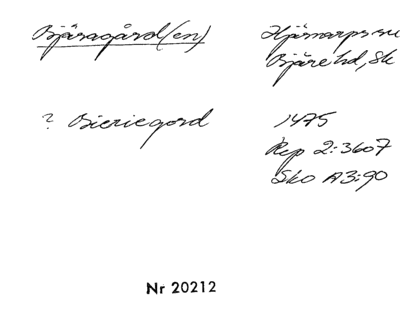 Bjäragård(en) Hjärnarps sn
Bjäre hd, Sk
? Bieriegord 1475
Rep 2:3607
Sko A3:90
Nr 20212